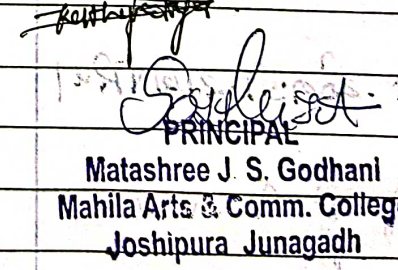 PRINCIPAL
Matashree J. S. Godhani
Mahila Arts & Comm. Colleg
Joshipura Junagadh